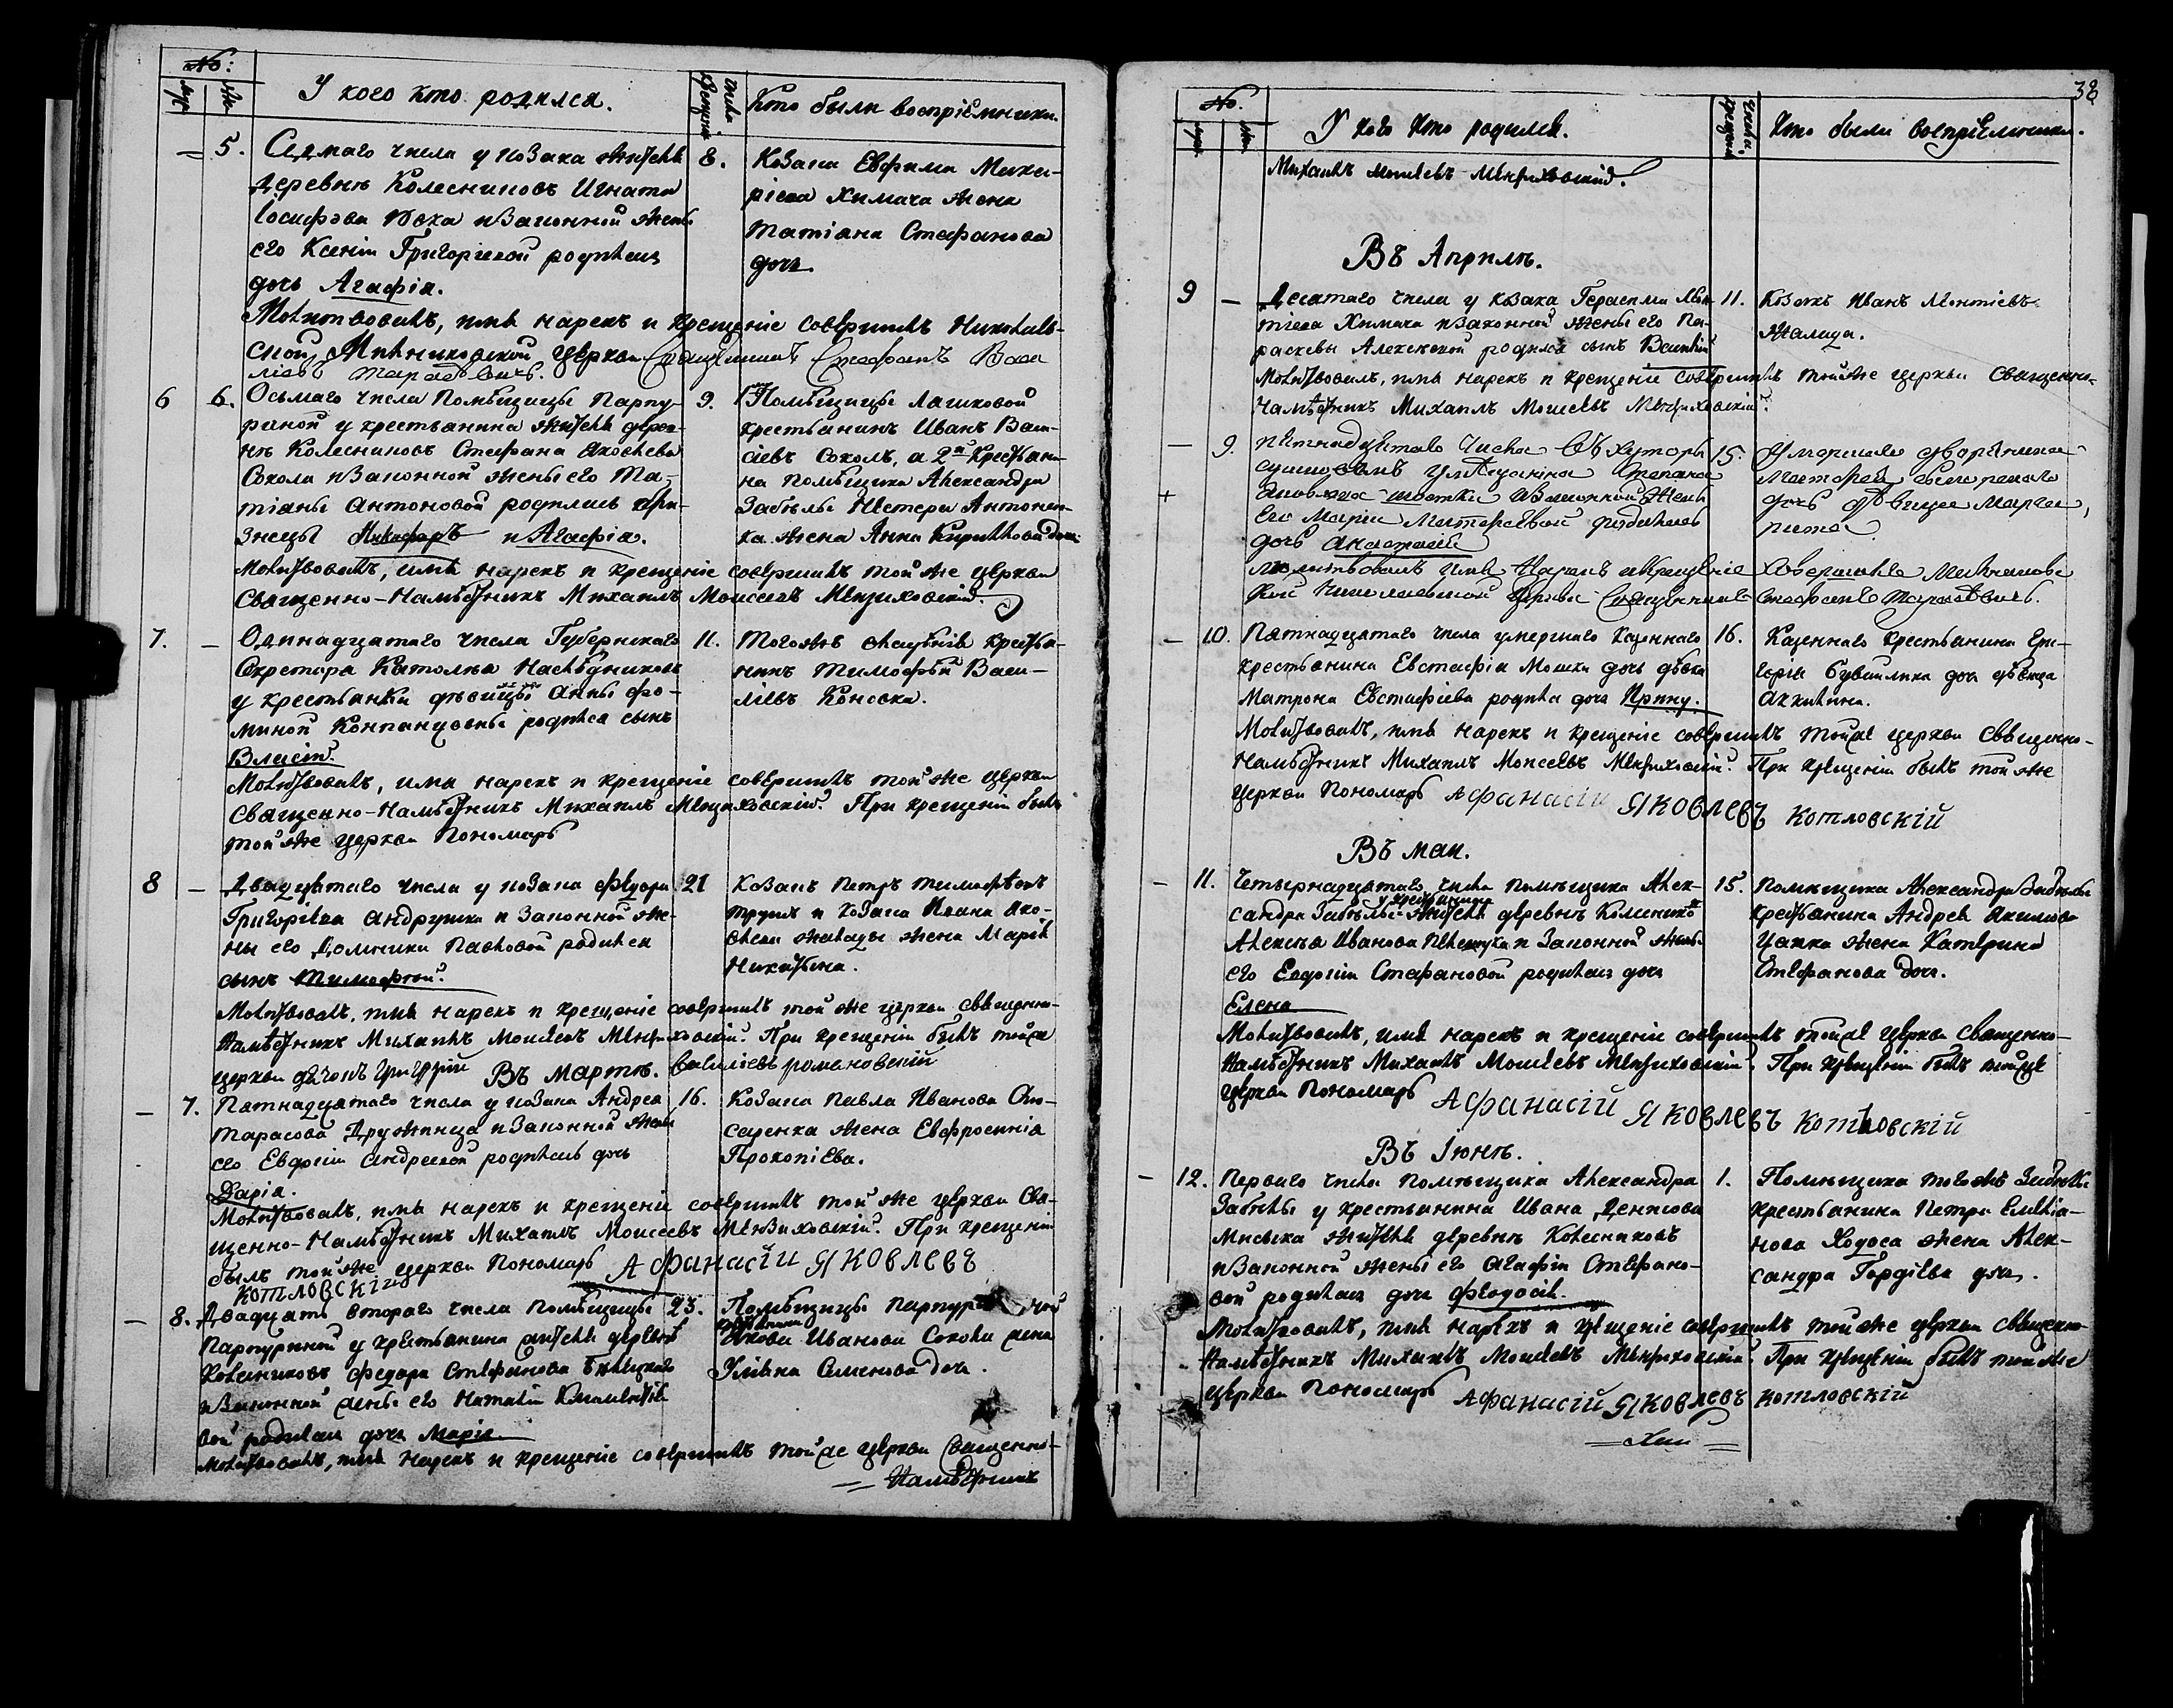 №:
муж
жен
У кого кто родился.
число крещенія
Кто были воспріемники.
5. Седмаго числа у козака жителя 8.
деревнѣ Колесниковъ Игната
Іосифова и законной жены
его Ксеніи Григоріевой родилась
дочь Агафія.
Козака Евфима
Химача жена
Татіана Стефанова
дочь.
Молитвовалъ, имя нарекъ и крещеніе совершилъ Николаев-
ской церкви священникъ Стефанъ Васи
ліевъ
6 6. Осьмаго числа Помѣщицы Парпу- 9.
риной у крестьянина жителя дерев-
нѣ Колесниковъ Стефана Яковлева
Сокола и законной жены его Та-
тіаны Антоновой родились близ-
знецы Никифоръ и Агафія.
Помѣщицы Лашковой
крестьянинъ Иванъ Васи-
ліевъ Соколъ, а 2й Крестьяни-
на помѣщика Александра
Забѣлы Нестера Антонен-
ка жена Анна Кириллова дочь
Молитвовалъ, имя нарекъ и крещеніе совершилъ той же церкви
Священно-Намѣстникъ Михаилъ Моисеевъ
7. — Одинадцатаго числа Губернскаго 11.
Секретара Наслѣдниковъ
у крестьянки дѣвицы Анны Фо-
миной родился сынъ
Власій.
Тогожъ крестья-
нинъ Тимофей Васи-
ліевъ Коновка.
Молитвовалъ, имя нарекъ и крещеніе совершилъ той же церкви
Священно-Намѣстникъ Михаилъ При крещеніи былъ
той же церкви Пономарь
8 — Двадцятаго числа у козака Федора 21
Григоріева Андрушка и законной же-
ны его Домники Павловой родился
сынъ Тимофей.
Козакъ Петръ Тимофѣевъ
и козака Ивана Яко-
влева жена Марія
Никитина.
Молитвовалъ, имя нарекъ и крещеніе совершилъ той же церкви священно-
Намѣстникъ Михаилъ Моисеевъ При крещеніи былъ тойже
церкви дячокъ Григорій Василіевъ романовскій
Въ Мартѣ.
— 7. Пятнадцатаго числа у козака Андрея 16.
Тарасова Дружинца и законной жены
его Евдокіи Андреевой родилась дочь
Дарія.
Козака Павла Иванова
жена Евфросинія
Прокопіева.
Молитвовалъ, имя нарекъ и крещеніе совершилъ той же церкви Свя-
щенно-Намѣстникъ Михаилъ Моисеевъ При крещеніи
былъ той же церкви Пономарь Афанасій Яковлевъ
Котловскій
— 8. Двадцать втораго числа помѣщицы 23.
Парпуриной у крестьянина жителя деревнѣ
Колесниковъ Федора Стефанова
и законной жены его Наталіи
вой родилась дочь Марія.
Помѣщицы
крестьянина
Якова Иванова Сокола жена
Уліяна Семенова дочь.
Молитвовалъ, имя нарекъ и крещеніе совершилъ тойже церкви Священно-
Намѣстникъ
38
№.
муж
жен
У кого кто родился.
число крещенія
Кто были воспріемники.
Михаилъ Моисеевъ
Въ Априлѣ.
9 — Десятаго числа у козака Герасима 11.
Химача и законной жены его Па-
раскевы Алексѣевой родился сынъ Василій
Козакъ Иванъ
Жалица.
Молитвовалъ, имя нарекъ и крещеніе совершилъ той же церкви Священно-
Намѣстникъ Михаилъ Моисеевъ
— 9. Пятнадцятаго числа въ хуторѣ 15.
+
его Маріи родилась
дочь Анастасія
Умершаго дворянина
дочь дѣвица Марга-
рита
Молитвовалъ имя нарекъ и крещеніе совершилъ
Николаевской церкви священникъ Стефанъ
— 10. Пятнадцатаго числа умершаго казеннаго 16.
крестьянина Евстафія Мошка дочь дѣвка
Матрона Евстафіева родила дочь Ирину.
Казеннаго крестьянина Гри-
горія дочь дѣвица
Акилина.
Молитвовалъ, имя нарекъ и крещеніе совершилъ тойже церкви Священно-
Намѣстникъ Михаилъ Моисеевъ При крещеніи былъ той же
церкви Пономарь Афанасій Яковлевъ Котловскій
Въ маи.
— 11. Четырнадцатаго числа помѣщика Алек- 15.
у крестьянина
сандра Забѣлы жителя деревнѣ Колесниковъ
Алексѣя Иванова и законной жены
его Евдокіи Стефановой родилась дочь
Елена
Помѣщика Александра Забѣлы
крестьянина Андрея Акимова
Цапка жена Катерина
Стефанова дочь.
Молитвовалъ, имя нарекъ и крещеніе совершилъ тойже церкви Священно-
Намѣстникъ Михаилъ Моисеевъ При крещеніи былъ тойже
церкви Пономарь Афанасій Яковлевъ Котловскій
Въ Іюнѣ.
— 12. Перваго числа помѣщика Александра 1.
Забѣлы у крестьянина Ивана Денисова
Мисыка жителя деревнѣ Колесниковъ
и законной жены его Агафіи Стефано-
вой родилась дочь Феодосія.
Помѣщика тогожъ Забѣлы
крестьянина Петра Емелія-
нова Ходоса жена Алек-
сандра Гордіева дочь.
Молитвовалъ, имя нарекъ и крещеніе совершилъ той же церкви священно-
Намѣстникъ Михаилъ Моисеевъ При крещеніи былъ той же
церкви Пономарь Афанасій Яковлевъ Котловскій